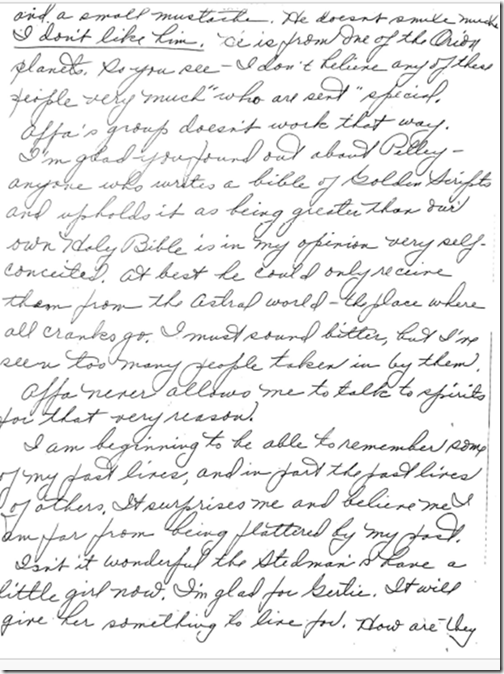 and a small mustache. He doesnt smile much
I don't like him. He is from one of the Orion
planets. So you see - I don't believe any of these
people very much "who are sent" special.
Affa's group doesn't work that way.
I'm glad you found out about Pelley -
anyone who writes a bible of Golden Scripts
and upholds it as being greater than our
own Holy Bible is in my opinion very self-
conceited. At best he could only receive
them from the Astral world - the place where
all cranks go. I must sound bitter, but I've
seen too many people taken in by them.
Affa never allows me to talk to spirits
for that very reason.
I am beginning to be able to remember some
of my past lives, and in part the past lives
of others. It surprises me and believe me I
am far from being flattered by my past.
Isn't it wonderful the Stedman's have a
little girl now. I'm glad for Gertie. It will
give her something to live for. How are they